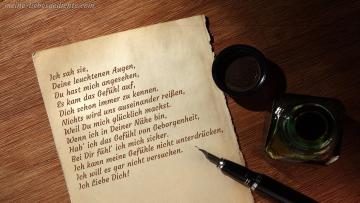 meine-liebesgedichte.com
Ich sah sie,
Deine leuchtenen Augen,
Du hast mich angesehen,
Es kam das Gefühl auf,
Dich schon immer zu kennen.
Nichts wird uns auseinander reißen,
Weil Du mich glücklich machst.
Wenn ich in Deiner Nähe bin,
Hab' ich das Gefühl von Geborgenheit,
Bei Dir fühl' ich mich sicher.
Ich kann meine Gefühle nicht unterdrücken,
Ich will es gar nicht versuchen.
Ich Liebe Dich!